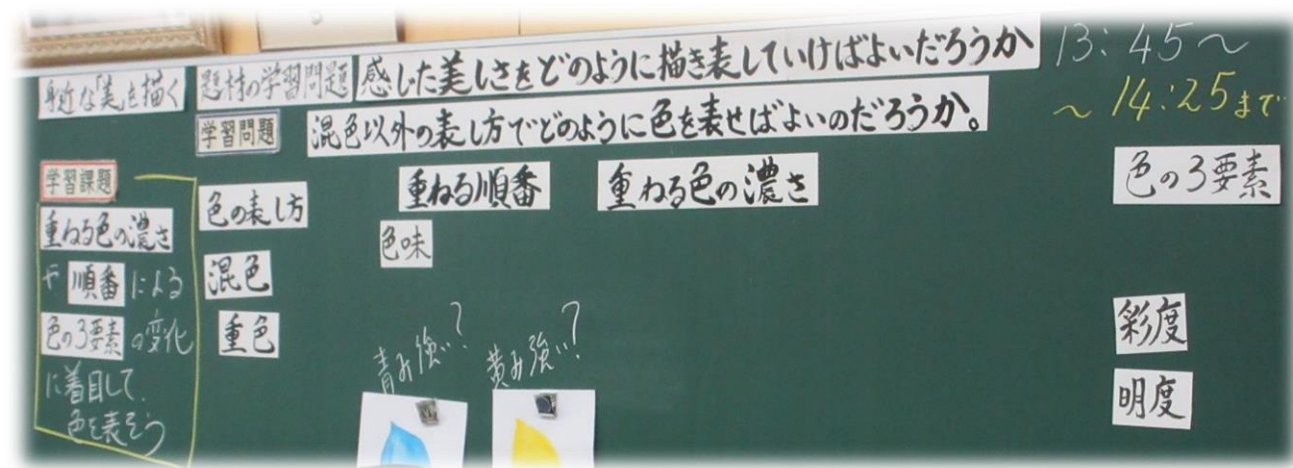 身近な「美」を描く
題材の学習問題
感じた美しさをどのように描き表していけばよいだろうか
13:45〜
〜14:25まで
学習問題
混色以外の表し方でどのように色を表せばよいのだろうか。
学習課題
重ねる色の濃さ
や 順番 による
色の3要素 の変化
に着目して、
色を表そう
色の表し方
混色
重色
重ねる順番
重ねる色の濃さ
色味
青み強い?
黄み強い?
色の3要素
彩度
明度